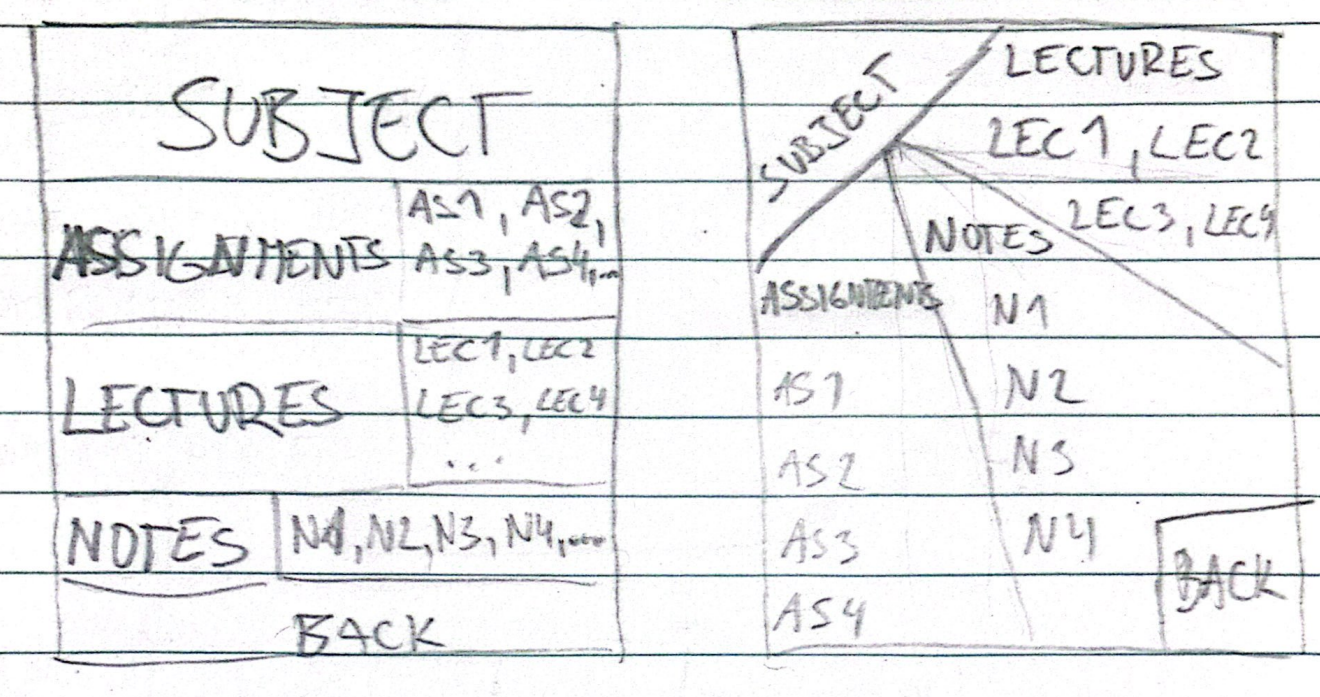 SUBJECT
ASSIGNMENTS
AS1, AS2,
AS3, AS4,...
LECTURES
LEC1, LEC2
LEC3, LEC4
...
NOTES
N1, N2, N3, N4,...
BACK
SUBJECT
LECTURES
LEC1, LEC2
LEC3, LEC4
NOTES
N1
N2
N3
N4
ASSIGNMENTS
AS1
AS2
AS3
AS4
BACK